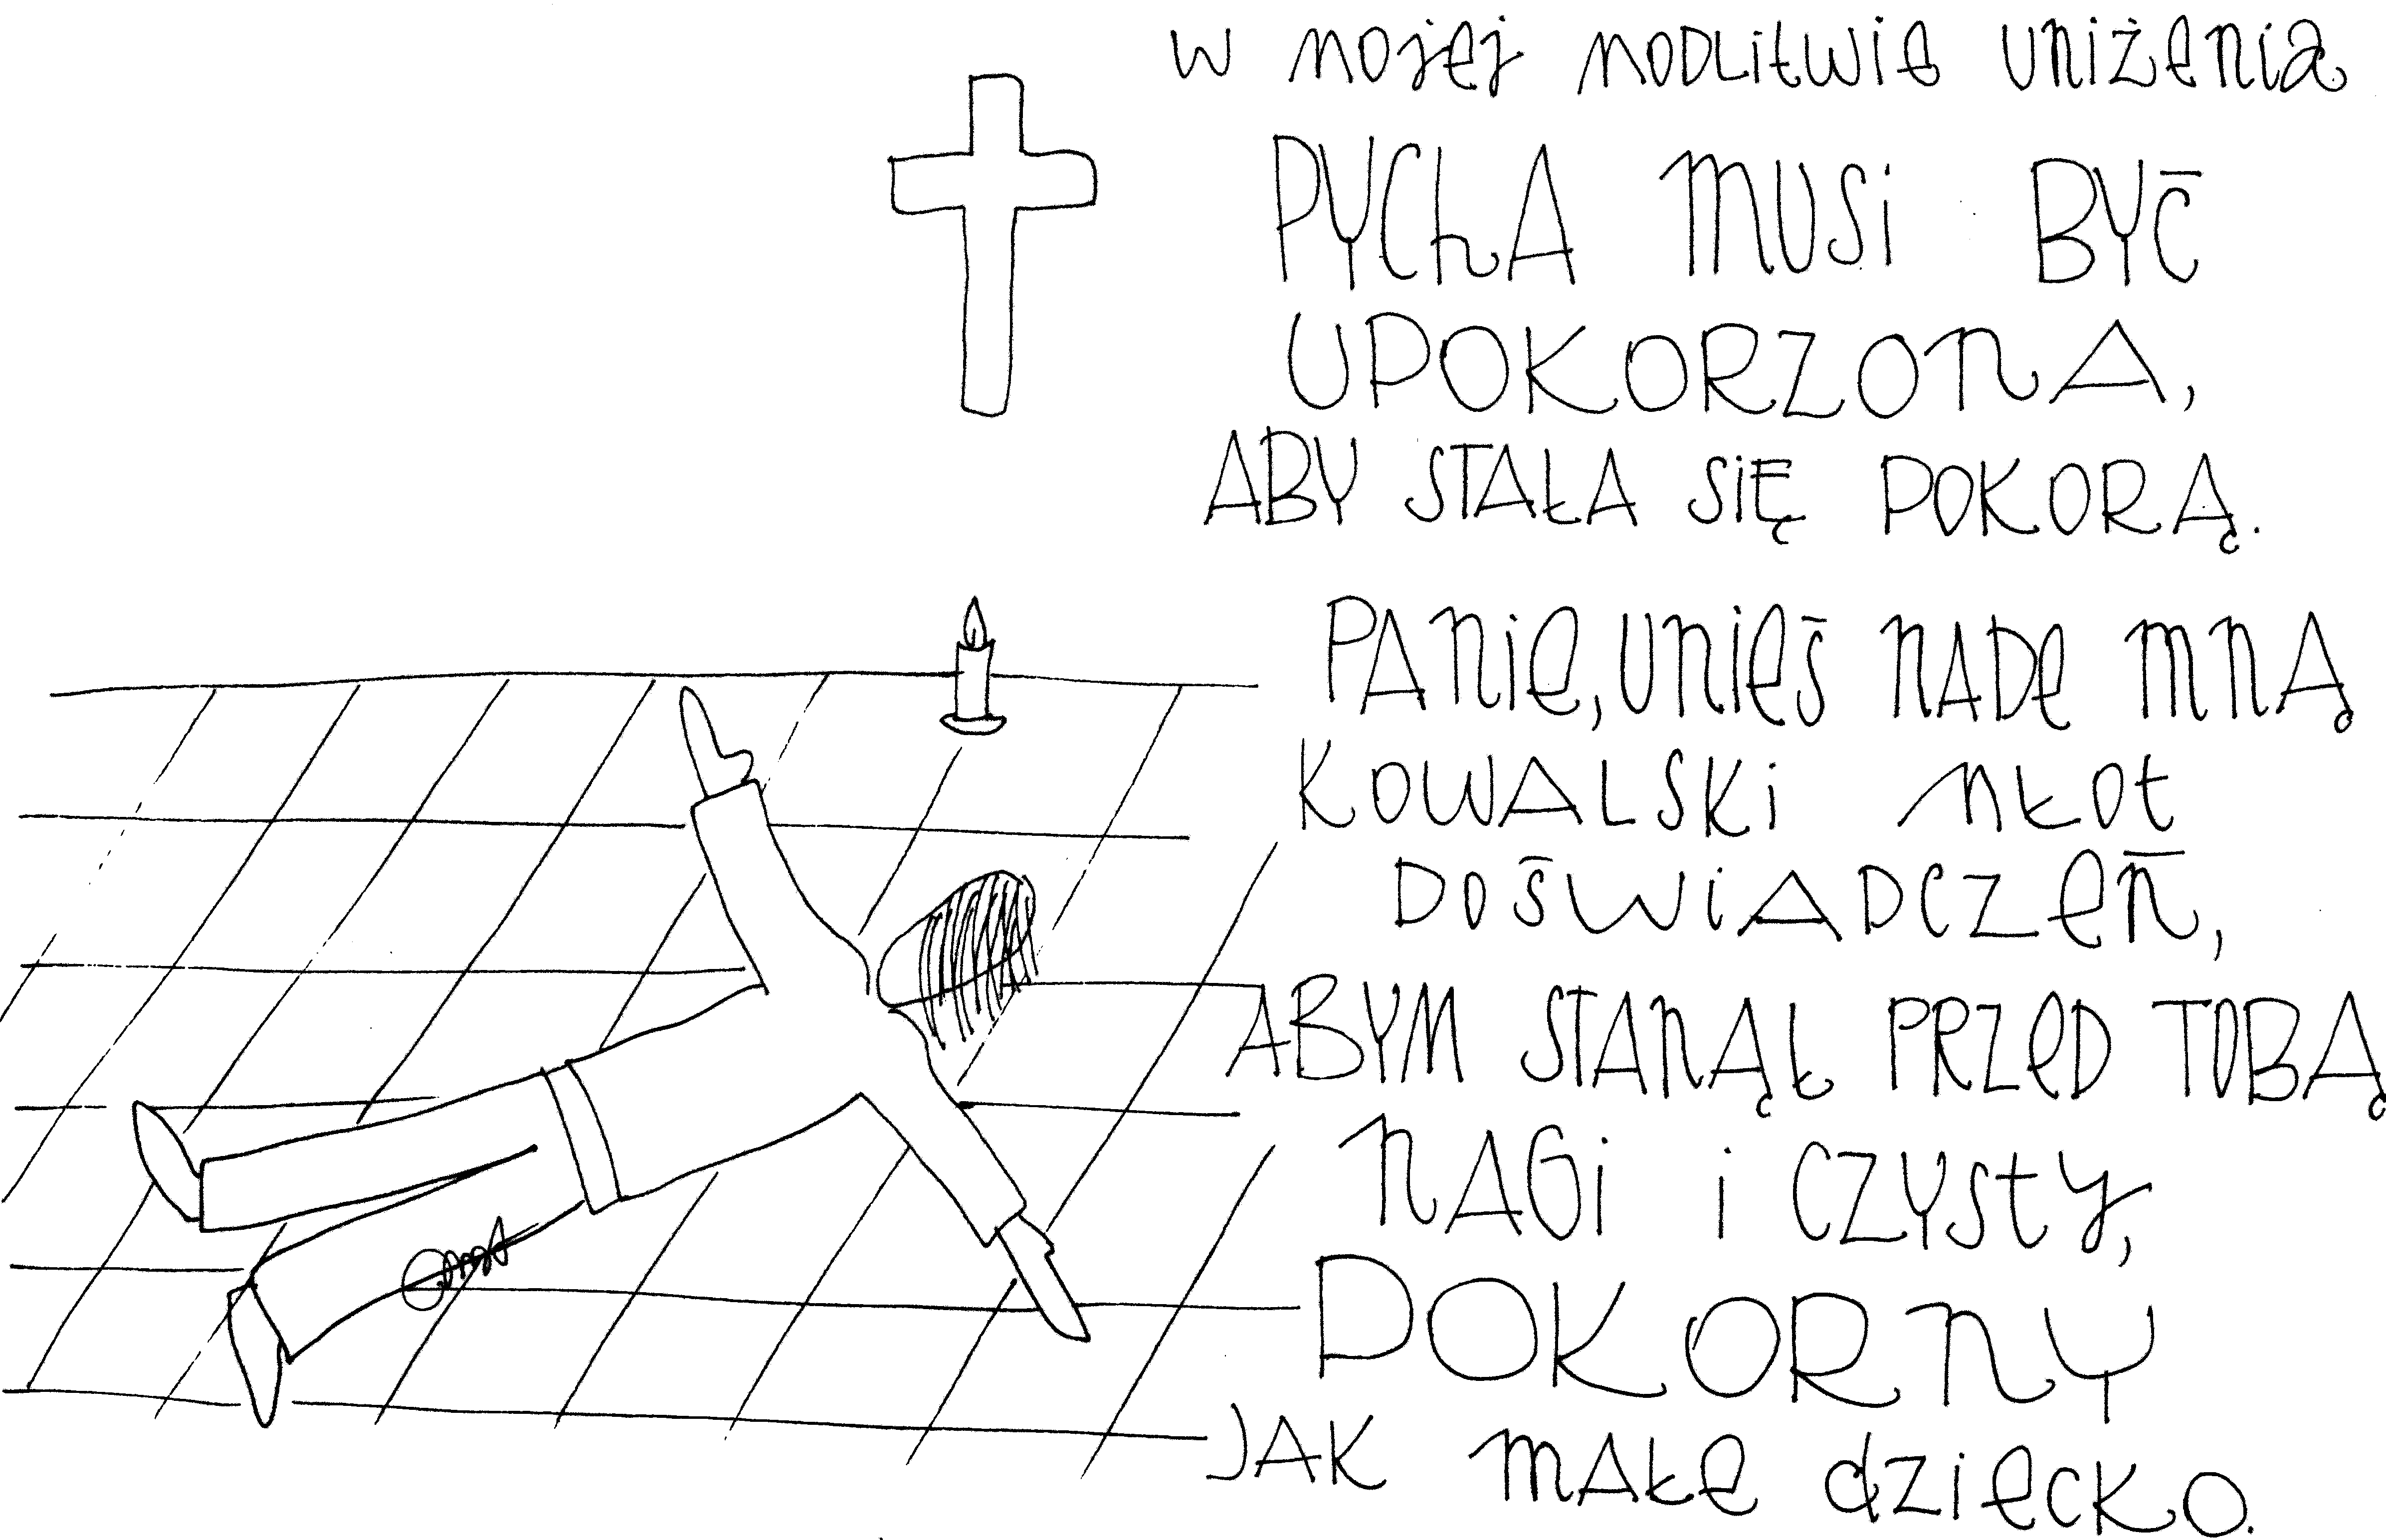 w mojej modlitwie uniżenia
PYChA MUSi BYĆ
UPOKORZONA,
ABY STAŁA SiĘ POKORĄ.
PANie, UNieś NADe MNĄ
KOWALSKi MŁOt
DOŚWiADCZeń,
ABYM STANĄŁ PRZeD TOBĄ
NAGi i CZYSty,
POKORNY
JAK MAŁe dZieCKO.